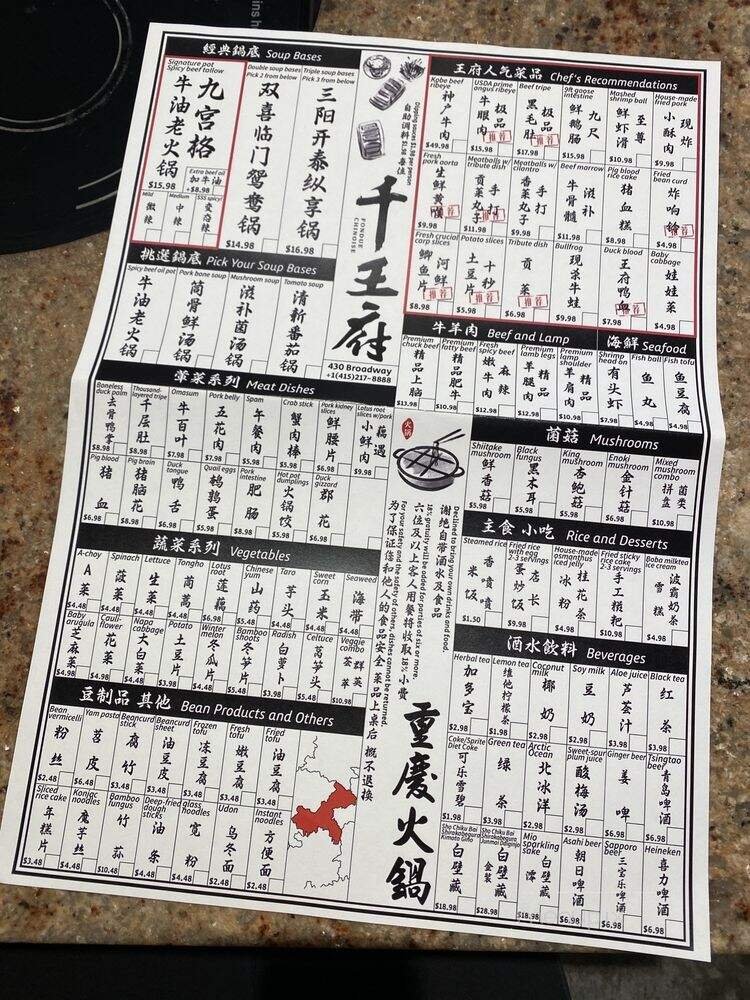 經典鍋底 Soup Bases
Signature pot
Spicy beef tallow
九宫格
牛油老火锅
$15.98
Extra beef oil
加牛油
+$8.98
Mild
微辣
Medium
中辣
SSS spicy
变态辣
Double soup bases
Pick 2 from below
双喜临门鸳鸯锅
$14.98
Triple soup bases
Pick 3 from below
三阳开泰纵享锅
$16.98
挑選鍋底 Pick Your Soup Bases
Spicy beef oil pot
牛油老火锅
Pork bone soup
筒骨鲜汤锅
Mushroom soup
滋补菌汤锅
Tomato soup
清新番茄锅
Dipping sauces $1.98 per person
自助调料 $1.98 每位
千王府
FONDUE
CHINOISE
430 Broadway
+1(415)217-8888
王府人气菜品 Chef's Recommendations
Kobe beef ribeye
神户牛肉
$49.98
USDA prime angus ribeye
极品牛眼肉
推荐
$15.98
Beef tripe
极品黑毛肚
推荐
$17.98
9ft goose intestine
九尺鲜鹅肠
$15.98
Mashed shrimp ball
至尊鲜虾滑
$10.98
House-made fried pork
现炸小酥肉
$9.98
Fresh pork aorta
生鲜黄喉
推荐
$9.98
Meatballs tribute dish
手打贡菜丸子
推荐
$11.98
Meatballs w/ cilantro
手打香菜丸子
$9.98
Beef marrow
滋补牛骨髓
$11.98
Pig blood rice cake
猪血糕
$8.98
Fried bean curd
炸响铃
推荐
$4.98
Fresh crucial carp slices
河鲜鲫鱼片
推荐
$9.98
Potato slices
十秒土豆片
推荐
$5.98
Tribute dish
贡菜
推荐
Bullfrog
现杀牛蛙
$9.98
Duck blood
王府鸭血
推荐
$7.98
Baby cabbage
娃娃菜
$4.98
牛羊肉 Beef and Lamp
Premium chuck beef
精品上脑
$13.98
Premium fatty beef
精品肥牛
$10.98
Fresh spicy beef
麻辣嫩牛肉
$12.98
Premium lamb legs
精品羊腿肉
$12.98
Premium lamp shoulder
精品羊肩肉
$10.98
海鮮 Seafood
Shrimp head on
有头虾
$7.98
Fish ball
鱼丸
$4.98
Fish tofu
鱼豆腐
$4.98
葷菜系列 Meat Dishes
Boneless duck palm
去骨鸭掌
$8.98
Thousand-layered tripe
千层肚
$8.98
Omasum
牛百叶
$7.98
Pork belly
五花肉
$5.98
Spam
午餐肉
$5.98
Crab stick
蟹肉棒
$5.98
Pork kidney slices
鲜腰片
$6.98
Lotus root slices w/pork
藕遇小鲜肉
$9.98
Pig blood
猪血
$6.98
Pig brain
猪脑花
$6.98
Duck tongue
鸭舌
$6.98
Quail eggs
鹌鹑蛋
$5.98
Pork intestine
肥肠
$8.98
Hot pot dumplings
火锅饺
$6.98
Duck gizzard
郡花
$6.98
火锅
菌菇 Mushrooms
Shiitake mushroom
鲜香菇
$5.98
Black fungus
黑木耳
$5.98
King mushroom
杏鲍菇
$5.98
Enoki mushroom
金针菇
$6.98
Mixed mushroom combo
菌类拼盘
$10.98
主食 小吃 Rice and Desserts
Steamed rice
香喷喷米饭
$1.50
Fried rice with egg 2-3 servings
店长蛋炒饭
$9.98
House-made osmanthus iced jelly
桂花冰粉
$4.98
Fried sticky rice cake 2-3 servings
手工糍粑
$10.98
Boba milk tea ice cream
波霸奶茶雪糕
$4.98
蔬菜系列 Vegetables
A-choy
A菜
$4.48
Spinach
菠菜
$4.48
Lettuce
生菜
$4.48
Tongho
茼蒿
$4.48
Lotus root
莲藕
$6.98
Chinese yum
山药
$5.48
Taro
芋头
$4.48
Sweet corn
玉米
$4.48
Seaweed
海带
$4.48
Baby arugula
芝麻菜
$4.98
Cauli-flower
花菜
$4.48
Napa cabbage
大白菜
$4.48
Potato
土豆片
$3.98
Winter melon
冬瓜片
$4.48
Bamboo shoots
冬笋片
$5.98
Radish
白萝卜
$3.98
Celtuce
莴笋头
$5.48
Veggie combo
群英荟萃
$10.98
Declined to bring your own drinks and food.
谢绝自带酒水及食品
18% gratuity will be added for parties of six or more.
六位及以上客人用餐将收取18%小费
For your safety and the safety of others, dishes cannot be returned.
为了保证您和他人的食品安全 菜品上桌后 概不退换
酒水飲料 Beverages
Herbal tea
加多宝
$2.98
Lemon tea
维他柠檬茶
$1.98
Coconut milk
椰奶
$2.98
Soy milk
豆奶
$2.98
Aloe juice
芦荟汁
$3.98
Black tea
红茶
$3.98
Coke/Sprite Diet Coke
可乐雪碧
$1.98
Green tea
绿茶
$3.98
Arctic Ocean
北冰洋
$2.98
Sweet-sour plum juice
酸梅汤
$2.98
Ginger beer
姜啤
$6.98
Tsingtao beer
青岛啤酒
$6.98
Sho Chiku Bai Shirakabegura Kimoto Ginjo
白壁藏
$18.98
Sho Chiku Bai Shirakabegura Junmai Daiginjo
白壁藏 金装
$28.98
Mio sparkling sake
白壁藏 澪
$18.98
Asahi beer
朝日啤酒
$6.98
Sapporo beer
三宝乐啤酒
$6.98
Heineken
喜力啤酒
$6.98
豆制品 其他 Bean Products and Others
Bean vermicelli
粉丝
$2.48
Yam pasta
苕皮
$6.48
Beancurd stick
腐竹
$3.48
Beancurd sheet
油豆皮
$3.48
Frozen tofu
冻豆腐
$3.48
Fresh tofu
嫩豆腐
$3.48
Fried tofu
油豆腐
$3.48
Sliced rice cake
年糕片
$3.48
Konjac noodles
魔芋丝
$4.48
Bamboo fungus
竹荪
$10.48
Deep-fried dough sticks
油条
$4.48
glass noodles
宽粉
$4.48
Udon
乌冬面
$2.48
Instant noodles
方便面
$2.48
重慶火鍋